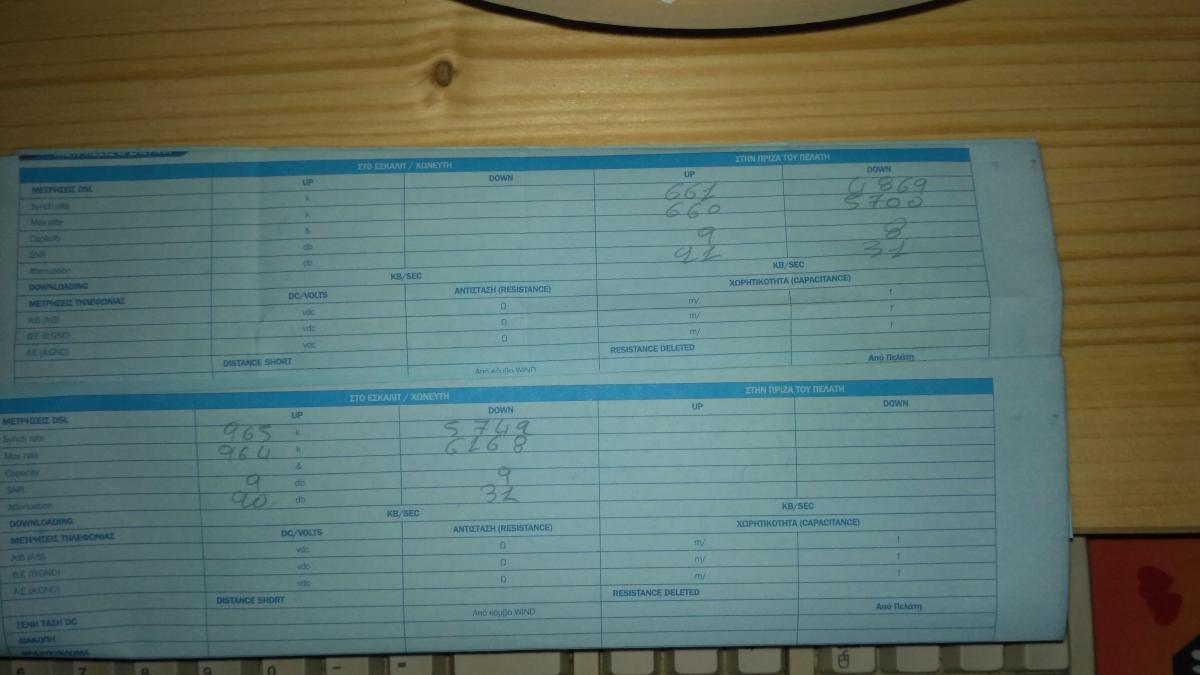 ΣΤΟ ΕΣΚΑΛΙΤ / ΧΩΝΕΥΤΗ ΣΤΗΝ ΠΡΙΖΑ ΤΟΥ ΠΕΛΑΤΗ
ΜΕΤΡΗΣΕΙΣ DSL UP DOWN UP DOWN
Synch rate k 661 4869
Max rate k 660 5700
Capacity &
SNR db 9 8
Attenuation db 31
DOWNLOADING KB/SEC KB/SEC
ΜΕΤΡΗΣΕΙΣ ΤΗΛΕΦΩΝΙΑΣ DC/VOLTS ΑΝΤΙΣΤΑΣΗ (RESISTANCE) ΧΩΡΗΤΙΚΟΤΗΤΑ (CAPACITANCE)
A:B (A:B) vdc Ω m/ f
B:E (B:GND) vdc Ω m/ f
A:E (A:GND) vdc Ω m/ f
DISTANCE SHORT RESISTANCE DELETED
Από κόμβο WIND Από Πελάτη
ΣΤΟ ΕΣΚΑΛΙΤ / ΧΩΝΕΥΤΗ ΣΤΗΝ ΠΡΙΖΑ ΤΟΥ ΠΕΛΑΤΗ
ΜΕΤΡΗΣΕΙΣ DSL UP DOWN UP DOWN
Synch rate 965 k 5749
Max rate 964 k 6168
Capacity &
SNR 9 db 9
Attenuation db 31
DOWNLOADING KB/SEC KB/SEC
ΜΕΤΡΗΣΕΙΣ ΤΗΛΕΦΩΝΙΑΣ DC/VOLTS ΑΝΤΙΣΤΑΣΗ (RESISTANCE) ΧΩΡΗΤΙΚΟΤΗΤΑ (CAPACITANCE)
A:B (A:B) vdc Ω m/ f
B:E (B:GND) vdc Ω m/ f
A:E (A:GND) vdc Ω m/ f
DISTANCE SHORT RESISTANCE DELETED
Από κόμβο WIND Από Πελάτη
ΞΕΝΗ ΤΑΣΗ DC
ΔΙΑΚΟΠΗ
6 7 8 9 0 - =